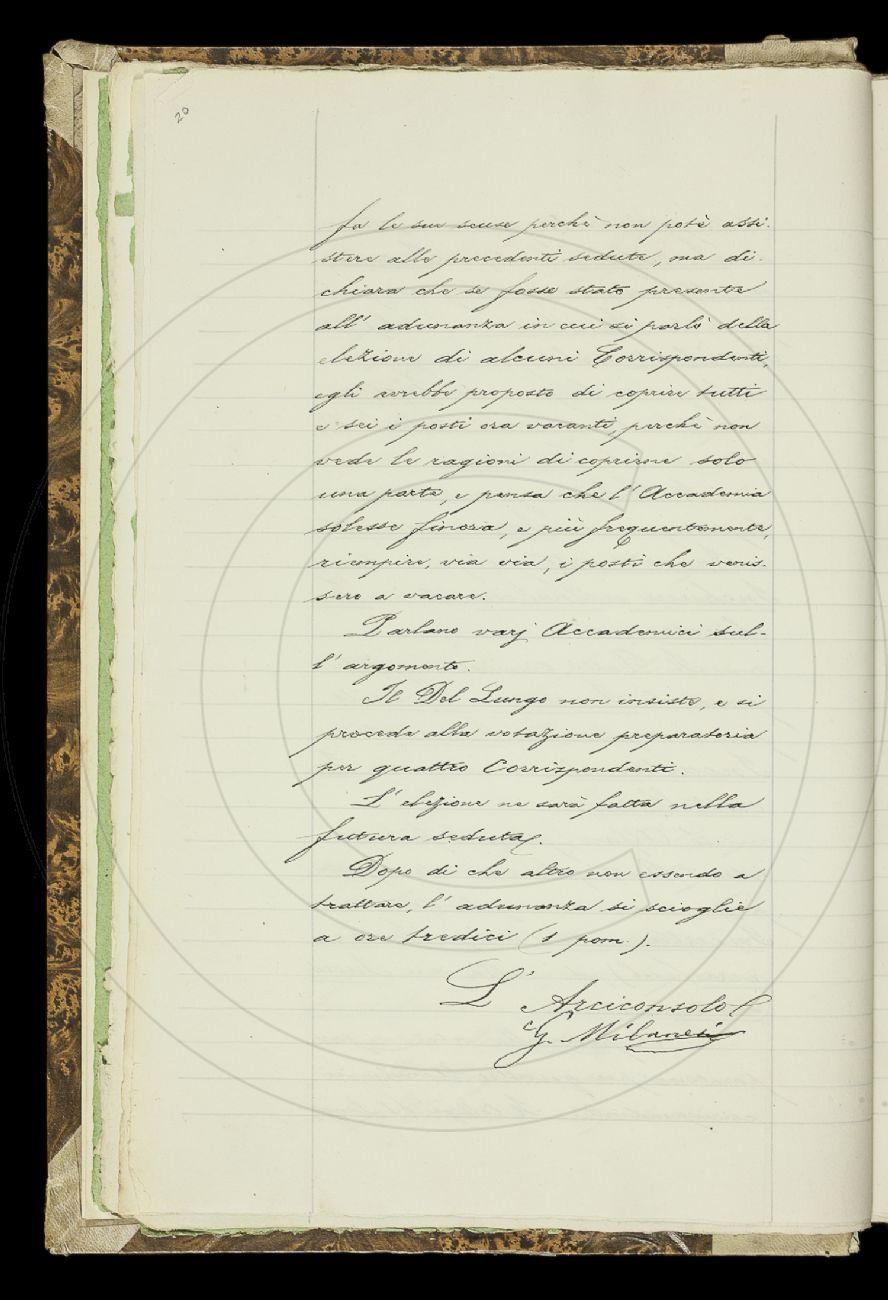 20
fa le sue scuse perchè non potè assi-
stere alle precedenti sedute, ma di-
chiara che se fosse stato presente
all' adunanza in cui si parlò della
elezione di alcuni Corrispondenti,
egli avrebbe proposto di coprire tutti
e sei i posti ora vacanti, perchè non
vede le ragioni di coprirne solo
una parte, e pensa che l' Accademia
solesse finora, e più frequentemente,
riempire, via via, i posti che venis-
sero a vacare.
Parlano varj Accademici sul-
l' argomento.
Il Del Lungo non insiste, e si
procede alla votazione preparatoria
per quattro Corrispondenti.
L' elezione ne sarà fatta nella
futura seduta.
Dopo di che altro non essendo a
trattare, l' adunanza si scioglie
a ore tredici (1 pom.).
L' Arciconsolo
G. Milanesi